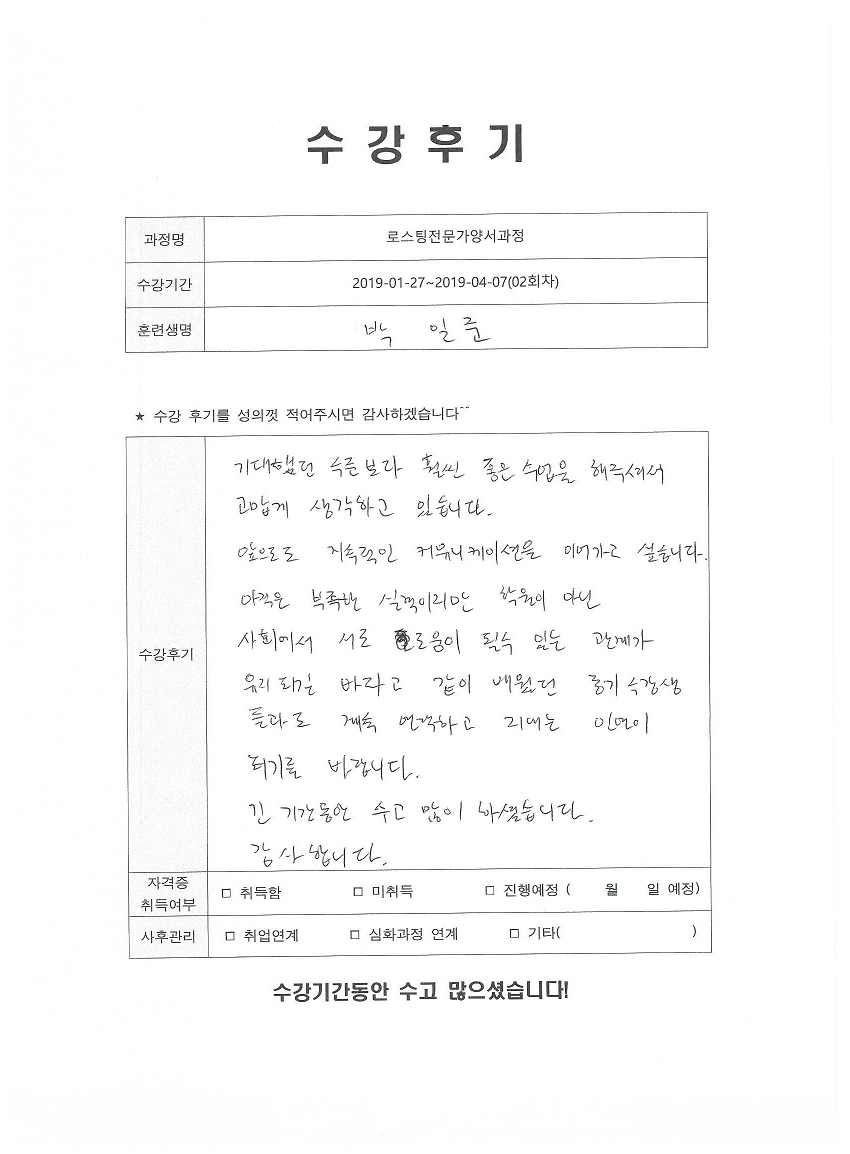 수강후기
과정명 로스팅전문가양서과정
수강기간 2019-01-27~2019-04-07(02회차)
훈련생명 박 일 준
★ 수강 후기를 성의껏 적어주시면 감사하겠습니다^^
수강후기
기대했던 수준보다 훨씬 좋은 수업을 해주셔서
고맙게 생각하고 있습니다.
앞으로도 지속적인 커뮤니케이션을 이어가고 싶습니다.
아직은 부족한 실력이지만 학원이 아닌
사회에서 서로 도움이 될수 있는 관계가
유지 되길 바라고 같이 배웠던 동기 수강생
들과도 계속 연락하고 지내는 인연이
되기를 바랍니다.
긴 기간동안 수고 많이 하셨습니다.
감사합니다.
자격증 취득여부 □ 취득함 □ 미취득 □ 진행예정 ( 월 일 예정)
사후관리 □ 취업연계 □ 심화과정 연계 □ 기타( )
수강기간동안 수고 많으셨습니다!